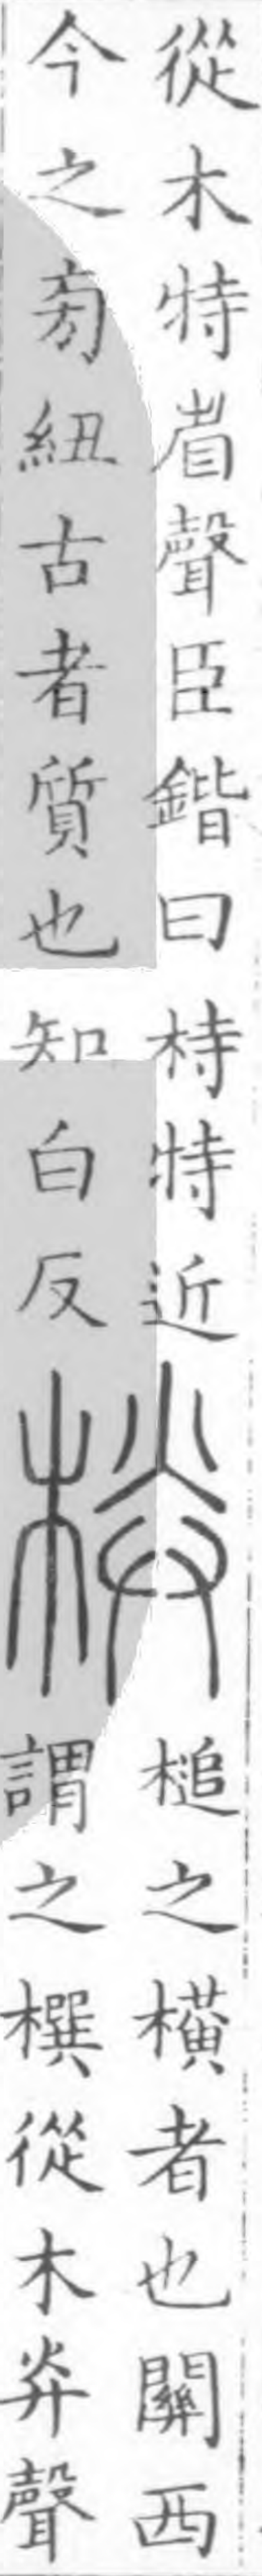 從木特省聲臣鍇曰㭙特近
今之旁紐古者質也知白反
栚
槌之橫者也關西
謂之㯢從木灷聲